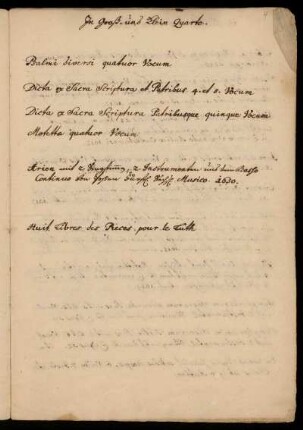 In Groß- und Klein Quarto.
Psalmi diversi quatuor Vocum
Dicta ex Sacra Scriptura et Patribus 4. et 5. Vocum
Dicta ex Sacra Scriptura Patribusque quinque Vocum
Motetta quatuor Vocum
Arien mit 2 2 Instrumenten und dem Basso
Continuo von Musico 1680.
Huit Livres des Pieces pour le Luth